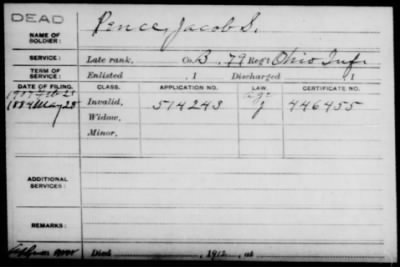 DEAD
NAME OF SOLDIER: Pence, Jacob S.
SERVICE: Late rank, Co. B. 79 Reg't Ohio Inf.
TERM OF SERVICE: Enlisted , 1 Discharged , 1
DATE OF FILING. CLASS. APPLICATION NO. LAW. CERTIFICATE NO.
1907 Feb 25 Age
1884 May 28 Invalid, 514243 J 446455
Widow,
Minor,
ADDITIONAL SERVICES:
REMARKS:
Died , 1912, at